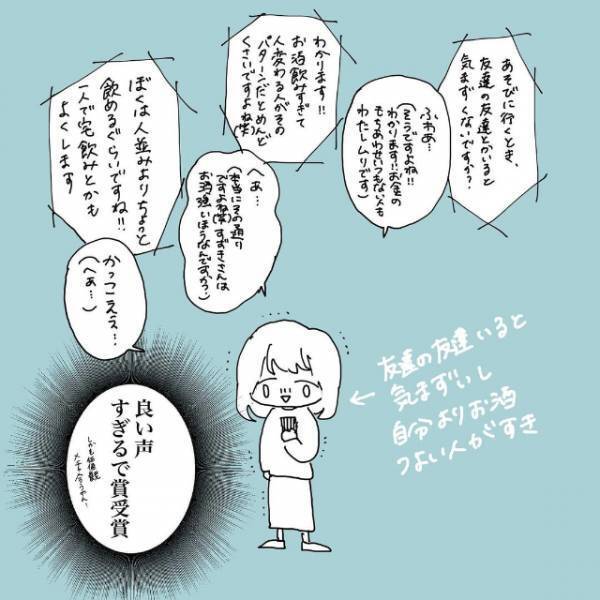 あそびに行くとき、
友達の友達とかいると
気まずくないですか？
ふわあ…
(そうですよね!!
わかります!!お金の
もちあわせいつもない人も
わたしムリです)
わかります!!
お酒飲みすぎて
人変わる人がその
パターンだとめんど
くさいですよね(笑)
へぁ…
(本当にその通り
ですよね(笑)すずきさんは
お酒強いほうなんですか？)
ぼくは人並みよりちょっと
飲めるぐらいですね!!
一人で宅飲みとかも
よくします
かっこええ…
(へぁ…)
良い声
すぎるで賞受賞
しかも価値観
メチャ合うやん!
←友達の友達いると
気まずいし
自分よりお酒
つよい人がすき